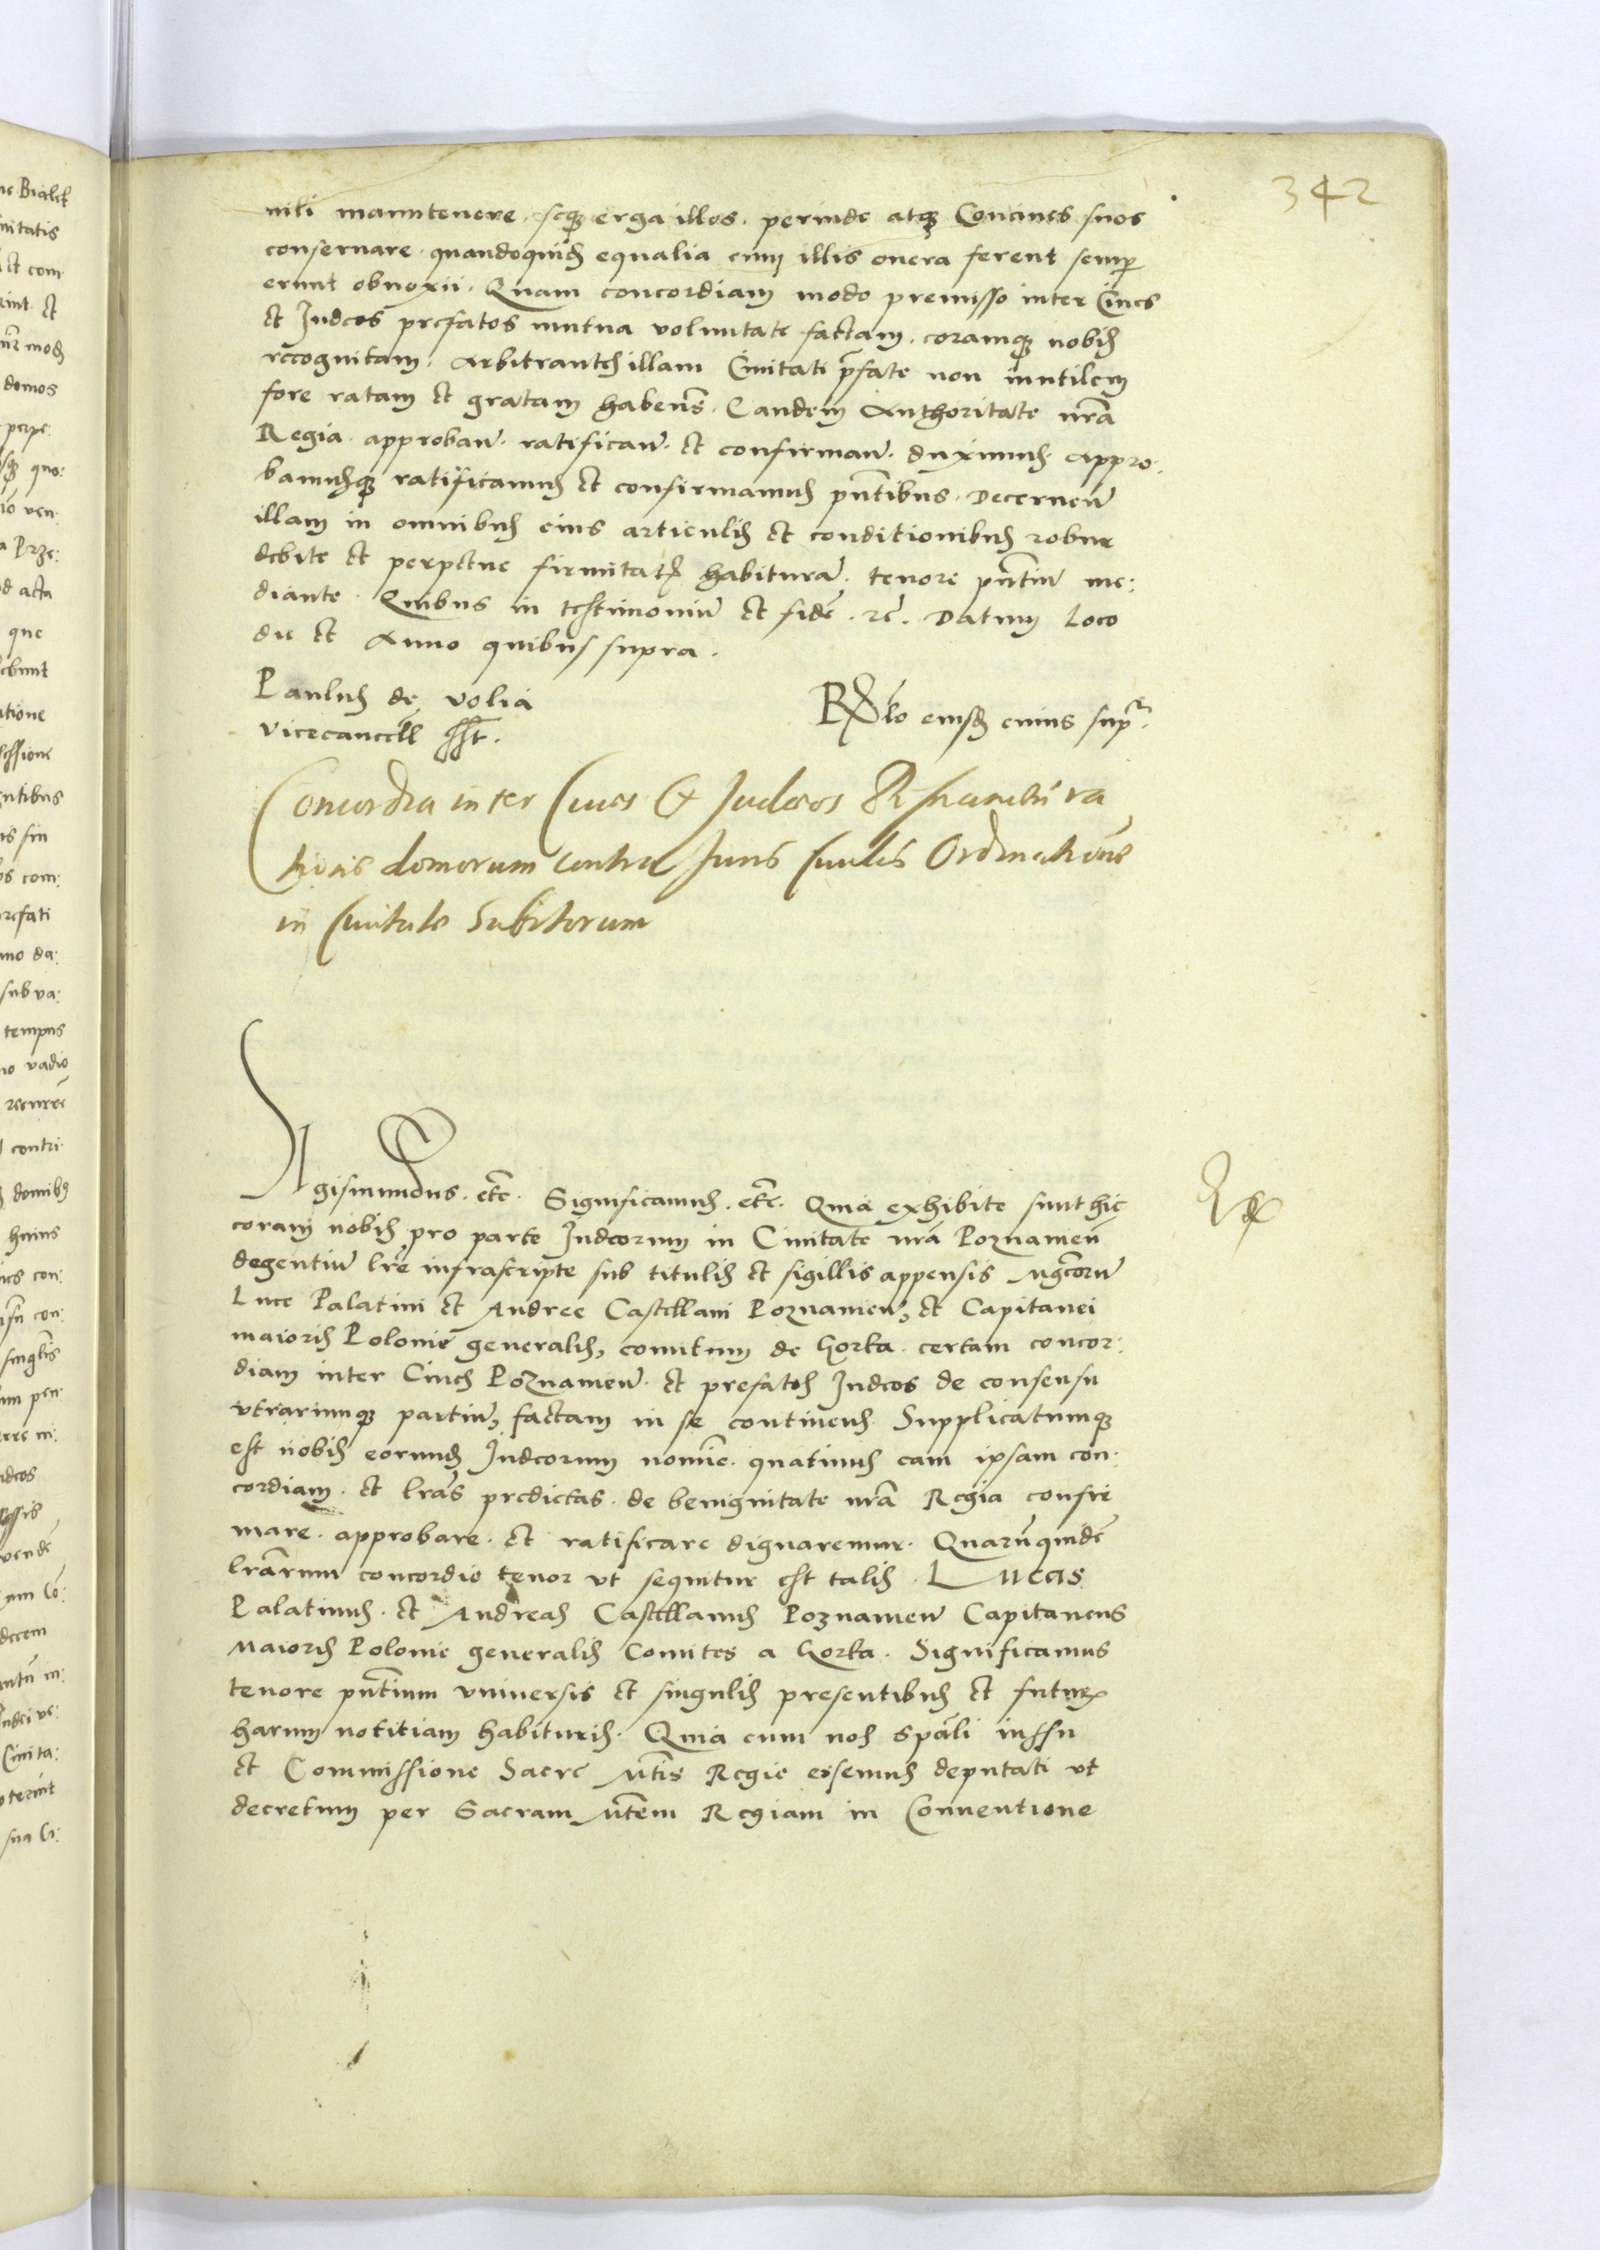 342
niti manutenere, seq3 erga illos, perinde atq3 Concives suos
conservare, quandoquid3 equalia cum illis onera ferent semp
erunt obnoxii. Quam concordiam modo premisso inter Cives
et Judeos prefatos mutua voluntate factam, coramq3 nobis
recognitam, Arbitrantes illam Civitati pfate non inutilem
fore ratam et gratam habens, Eandem Authoritate nra
Regia approban. ratifican. et confirman. duximus appro:
bamusq3 ratificamus et confirmamus pntibus. Decernen
illam in omnibus eius articulis et conditionibus robur
debite et perpetue firmitatis habituram. tenore pntium me:
diante. Quibus in testimoniu et fide. rc. Datum Loco
die et Anno quibus supra.
Paulus de volia
vicecancell sst.
Rlo eiusd cuius supra.
Concordia inter Cives et Judeos Posnanien ra
tionis domorum contra Juris Civilis Ordinatione
in Civitate Subitorum
Sigismundus. etc. Significamus. etc. Quia exhibite sunt hic
coram nobis pro parte Judeorum in Civitate nra Poznanien
degentiu lre infrascripte sub titulis et sigillis appensis Mgcoru
Luce Palatini et Andree Castellani Poznanien, et Capitanei
maioris Polonie generalis, comitum de Gorka certam concor:
diam inter Cives Poznanien. et prefatos Judeos de consensu
utrarumq3 partium, factam in se continens. Supplicatumq3
est nobis eorund Judeorum nomie. quatinus eam ipsam con:
cordiam. et lras predictas. de benignitate nra Regia confir
mare. approbare. et ratificare dignaremur. Quaruquide
lrarum concordie tenor ut sequitur est talis. Lucas
Palatinus. et Andreas Castellanus Poznanien Capitaneus
Maioris Polonie generalis Comites a Gorka. Significamus
tenore pntium universis et singulis presentibus et futuris
harum notitiam habituris. Quia cum nos spali iussu
et Commissione Sacre Mtis Regie essemus deputati ut
decretum per Sacram Mtem Regiam in Conventione